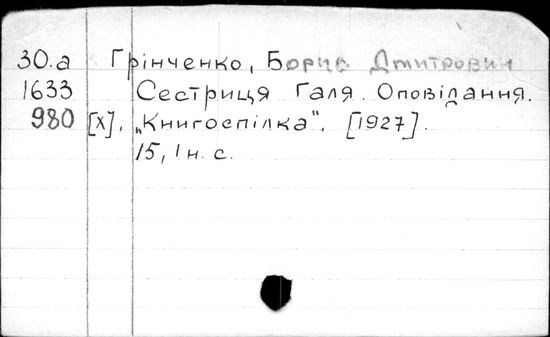 30.а Грінченко, Борис Дмитрович
1633 Сестриця Галя. Оповідання.
980 [Х], „Книгоспілка", [1927].
15, 1 н. с.